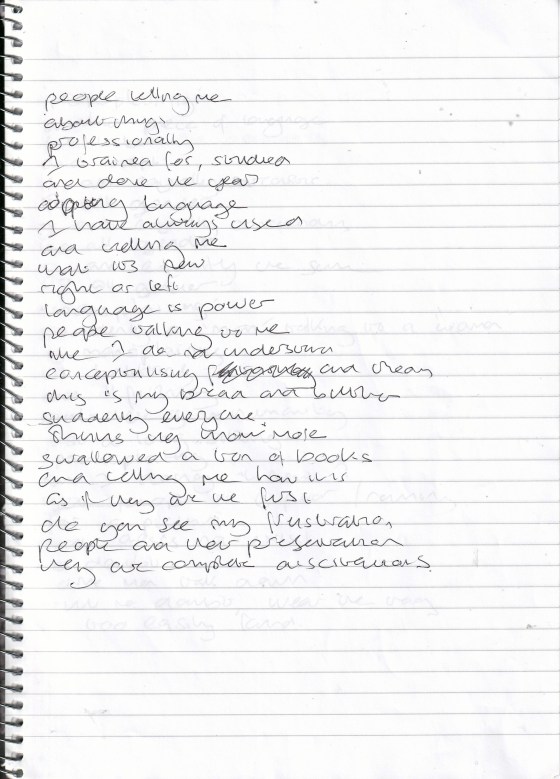 people telling me
about things
professionally
I trained for, studied
and done the years
adopting language
I have always used
and telling me
what its new
right or left
language is power
people talking to me
like I do not understand
conceptualising and theory
this is my bread and butter
suddenly everyone
thinks they know more
swallowed a ton of books
and telling me how it is
as if they are the first
do you see my frustration
people and their presentation
they are complete